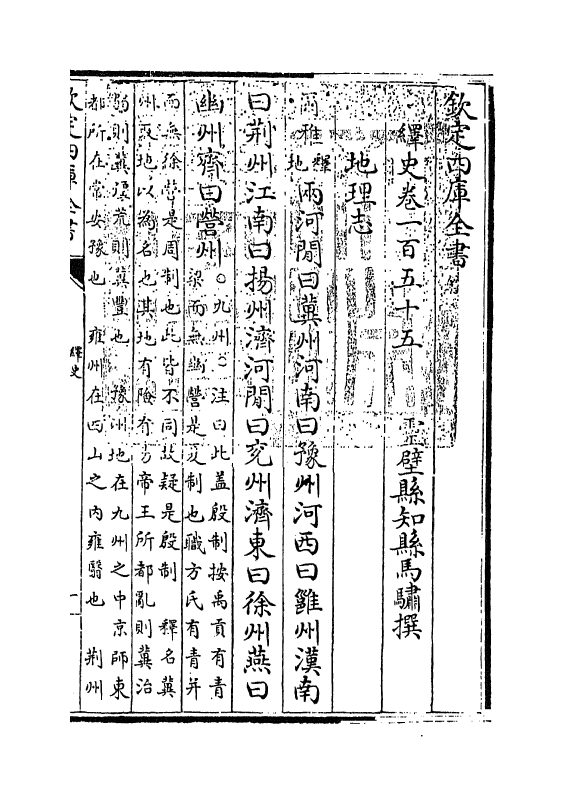 欽定四庫全書
繹史卷一百五十五
靈壁縣知縣馬驌撰
地理志
爾雅釋地兩河間曰冀州河南曰豫州河西曰雝州漢南
曰荆州江南曰揚州濟河間曰兖州濟東曰徐州燕曰
幽州齊曰營州○九州○注曰此蓋殷制按禹貢有青
梁而無幽營是夏制也職方氏有青并
而無徐營是周制也此皆不同故疑是殷制 釋名冀
州取地以為名也其地有險有易帝王所都亂則冀治
弱則冀彊荒則冀豐也 豫州地在九州之中京師東
都所在常安豫也 雍州在四山之内雍翳也 荆州
欽定四庫全書
繹史
一